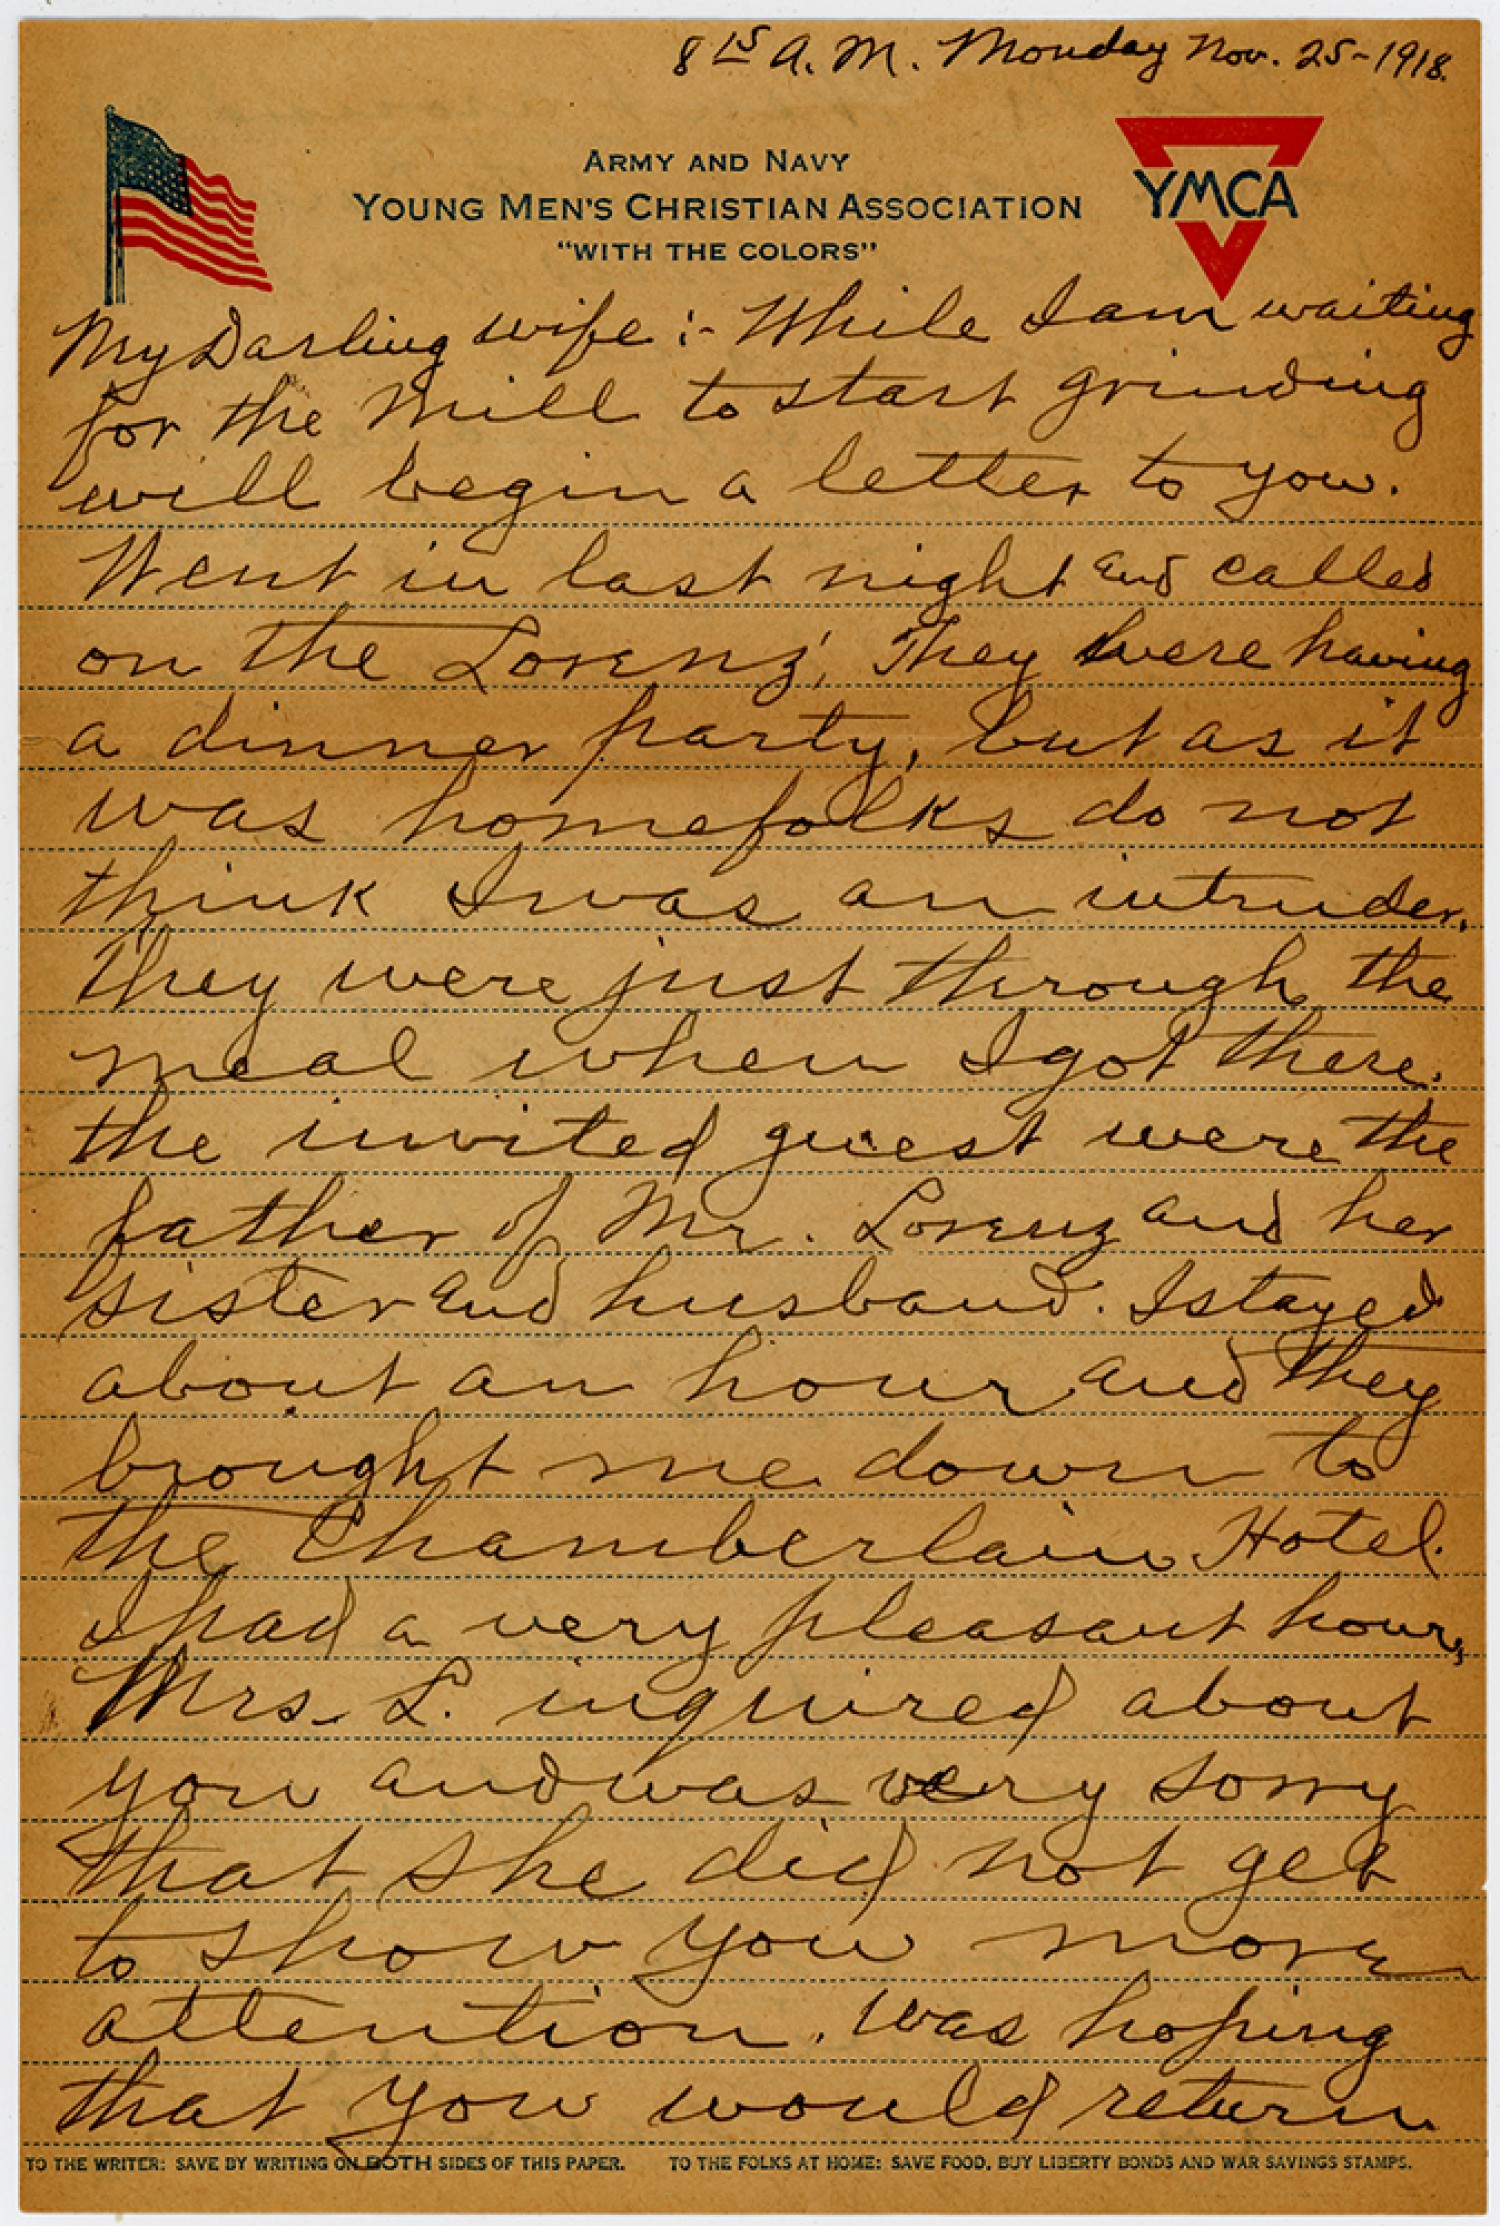 8 15 A. M. Monday Nov. 25-1918.
ARMY AND NAVY
YOUNG MEN'S CHRISTIAN ASSOCIATION
"WITH THE COLORS"
YMCA
My Darling wife:- While I am waiting
for the Mill to start grinding
will begin a letter to you.
Went in last night and called
on the Lorenz', They were having
a dinner party, but as it
was homefolks do not
think I was an intruder.
They were just through the
meal when I got there.
the invited guest were the
father of Mr. Lorenz and her
sister and husband. I stayed
about an hour and they
brought me down to
the Chamberlain Hotel.
I had a very pleasant hour,
Mrs. L. inquired about
you and was very sorry
that she did not get
to show you more
attention. Was hoping
that you would return
TO THE WRITER: SAVE BY WRITING ON BOTH SIDES OF THIS PAPER. TO THE FOLKS AT HOME: SAVE FOOD, BUY LIBERTY BONDS AND WAR SAVINGS STAMPS.